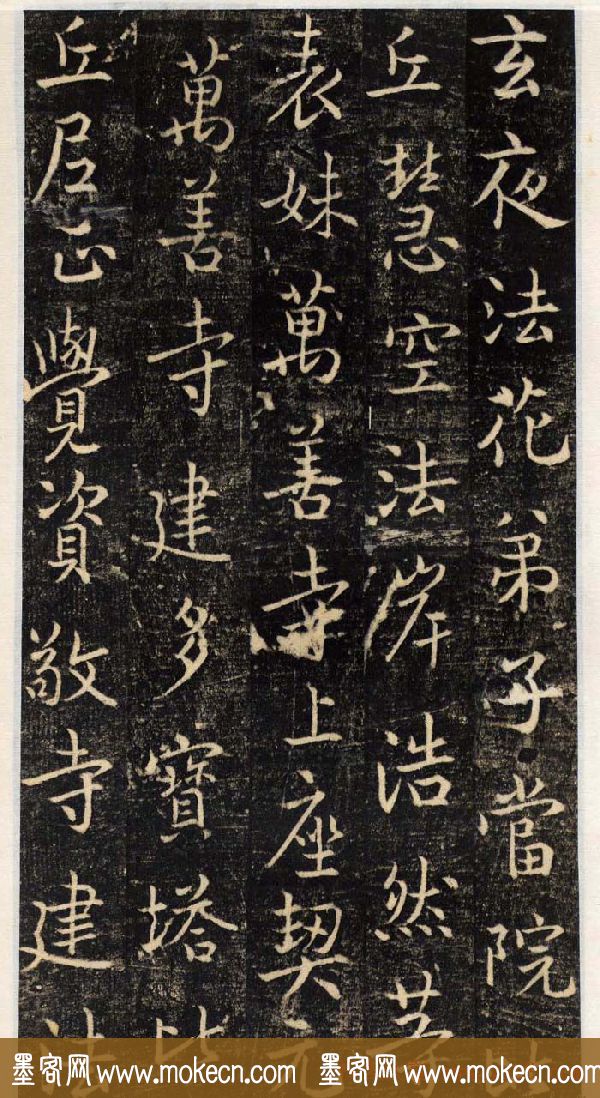 玄夜法花弟子當院比
丘慧空法岸浩然等
表妹萬善寺上座契元
萬善寺建多寶塔比
丘尼正覺資敬寺建法
墨客网 www.mokecn.com 墨客网 www.mokecn.com